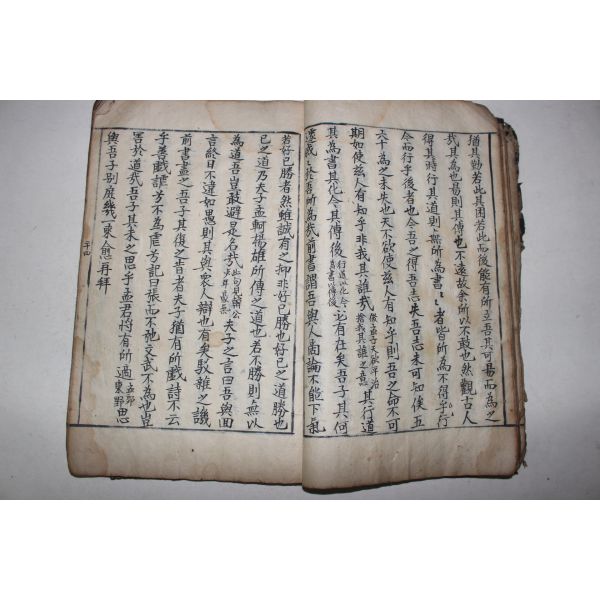 猶其勤若此其困若此而後能有所立吾其可易而為之
哉其為也易則其傳也不遠故余所以不敢也然觀古人
得其時行其道則無所為書〻者皆所為不得乎行
今而行乎後者也今吾之得吾志失吾志未可知俟五
六十為之未失也天不欲使兹人有知乎則吾之命不可
期如使兹人有知乎非我其誰哉倣孟子天欲平治捨我其誰之意其行道
其為書其化今其傳後行道以化今為書傳後必有在矣吾子其何
遽戚〻於吾所為哉前書謂吾與人商論不能下氣
若好已勝者然雖誠有之抑非好已勝也好已之道勝也
已之道乃夫子孟軻揚雄所傳之道也若不勝則無以
為道吾豈敢避是名哉此句見韓公夫子之言曰吾與回
言終日不違如愚則其與衆人辯也有矣駁雜之譏
前書盡之吾子其復之昔者夫子猶有所戱詩不云
乎善戱謔兮不為虐兮記曰張而不弛文武不為也豈
害於道哉吾子其未之思乎孟君將有所適孟郊東野思
與吾子别庶幾一來愈再拜